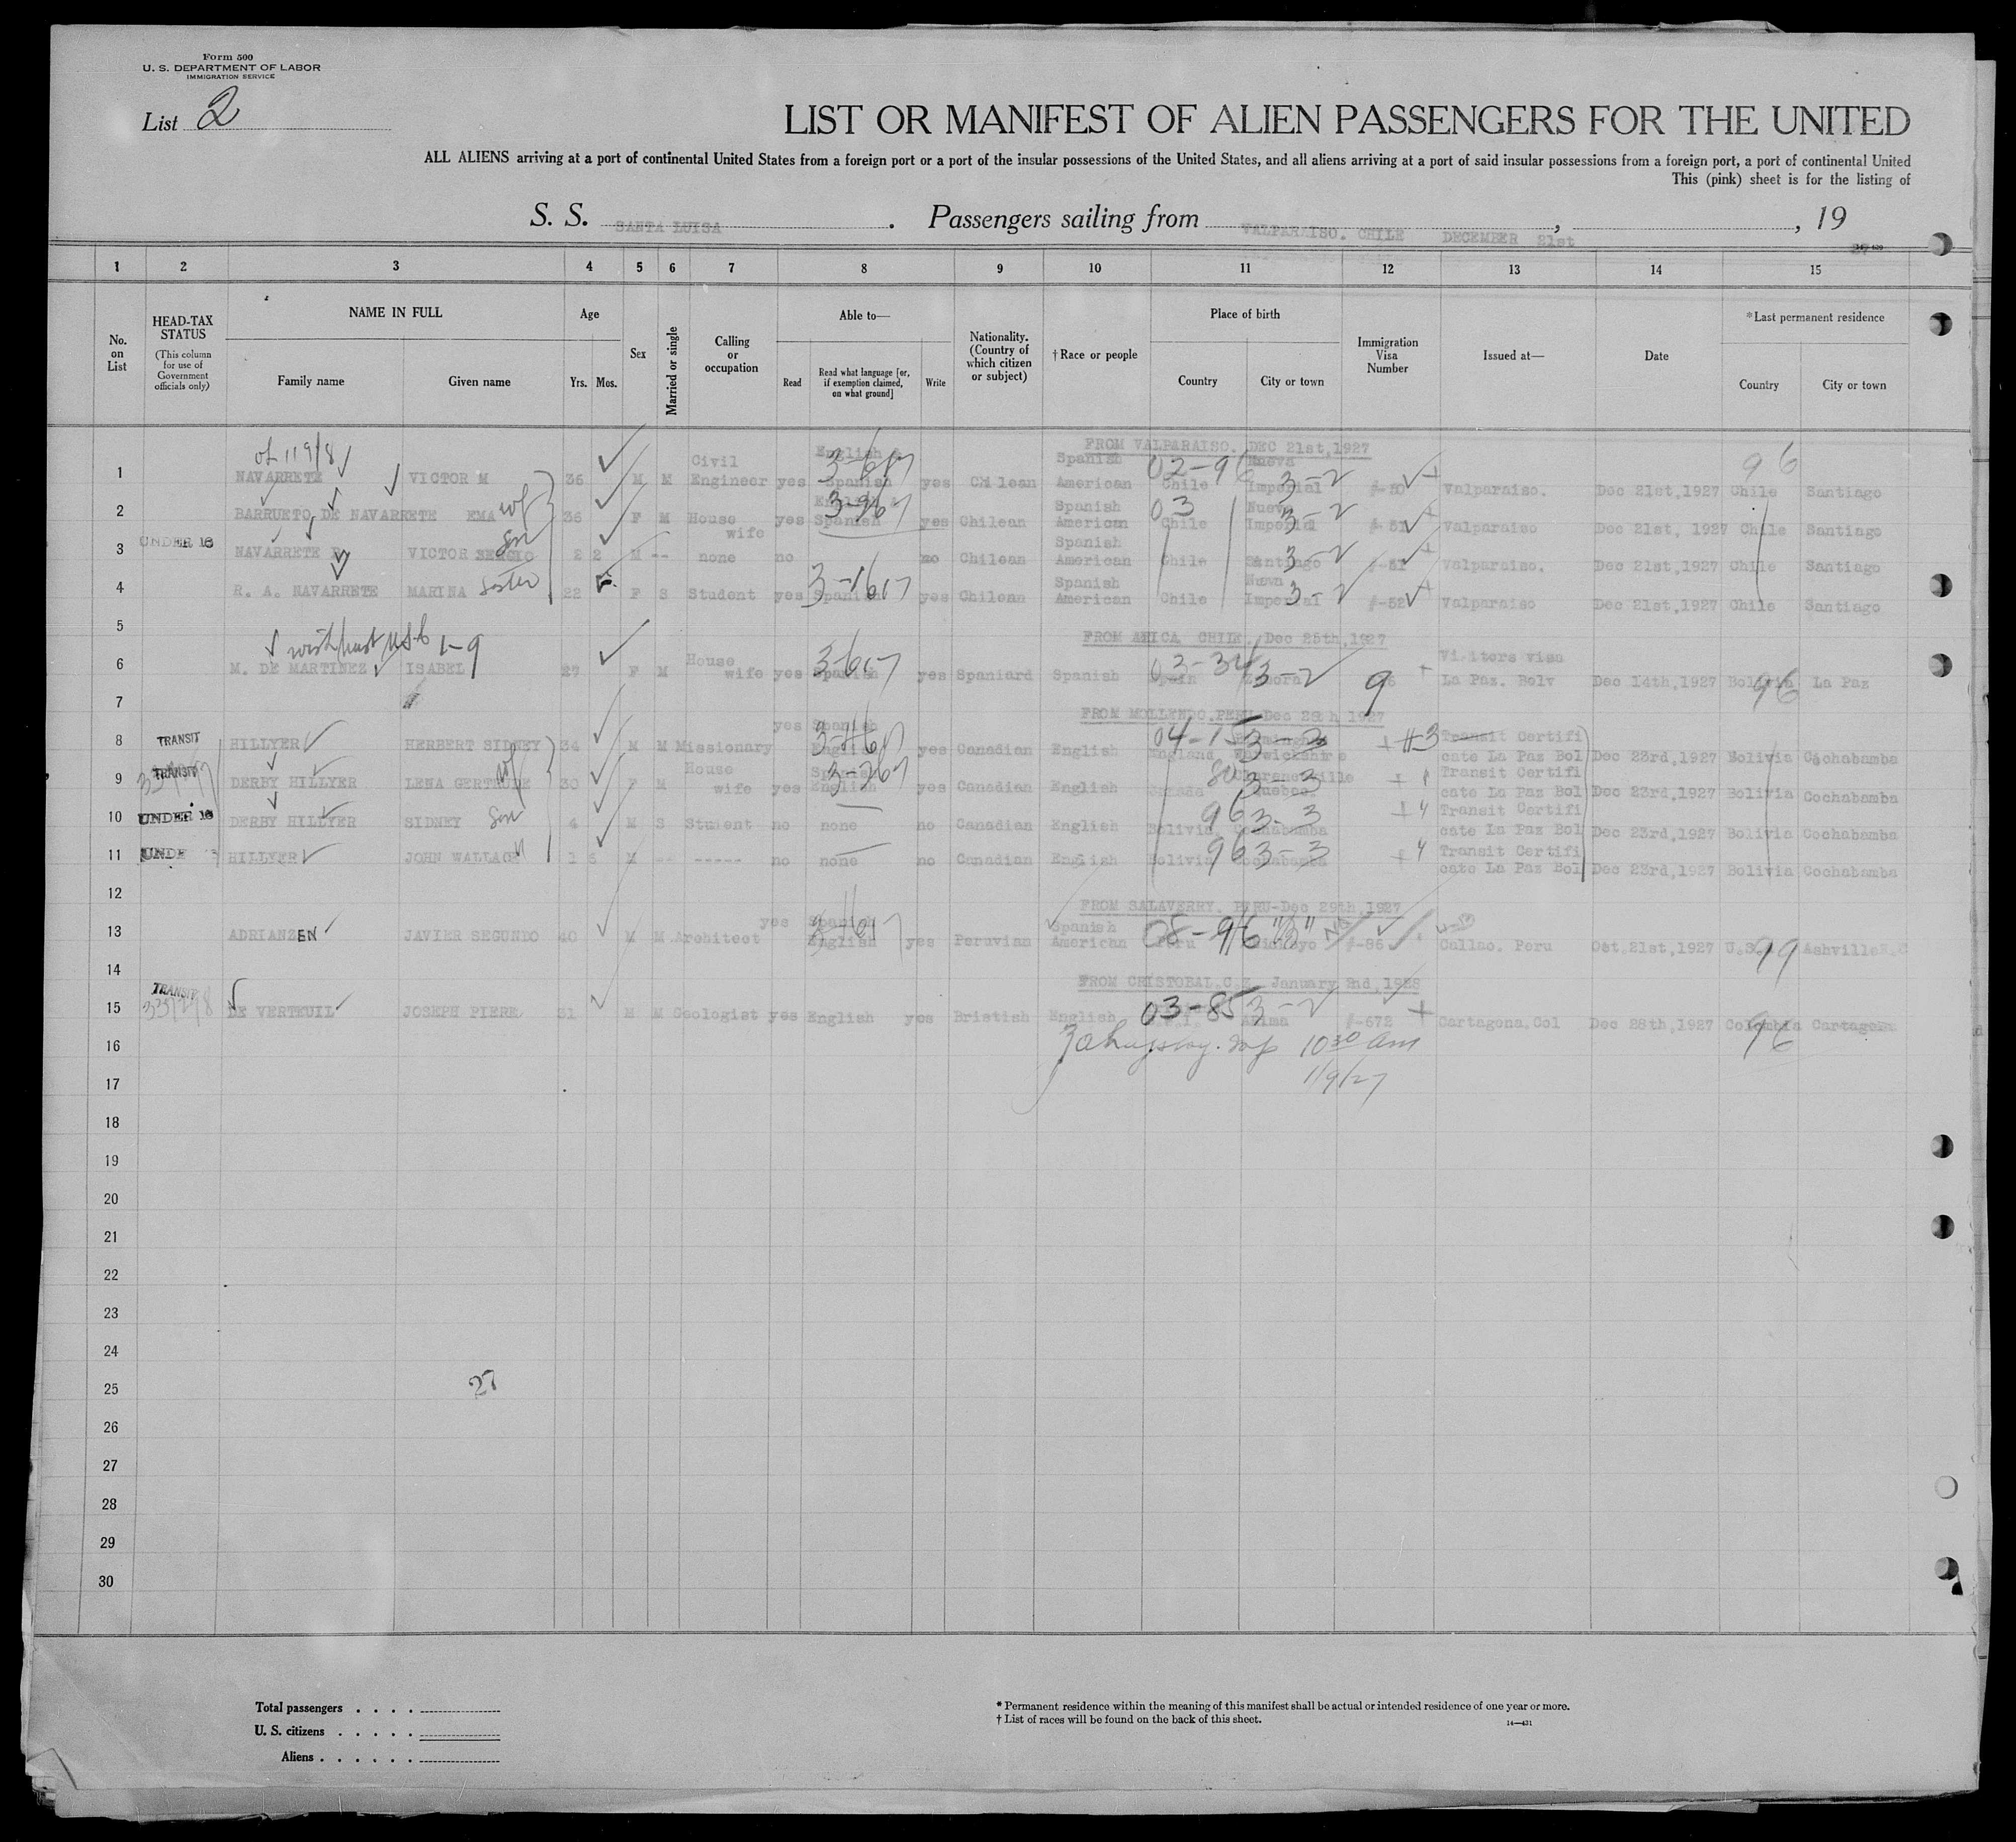 Form 500
U. S. DEPARTMENT OF LABOR
IMMIGRATION SERVICE
List 2
LIST OR MANIFEST OF ALIEN PASSENGERS FOR THE UNITED
ALL ALIENS arriving at a port of continental United States from a foreign port or a port of the insular possessions of the United States, and all aliens arriving at a port of said insular possessions from a foreign port, a port of continental United
This (pink) sheet is for the listing of
S. S. SANTA LUISA. Passengers sailing from VALPARAISO. CHILE DECEMBER 21st, 19
1 2 3 4 5 6 7 8 9 10 11 12 13 14 15
No. on List
HEAD-TAX STATUS
(This column for use of Government officials only)
NAME IN FULL
Family name Given name
Age
Yrs. Mos.
Sex
Married or single
Calling or occupation
Able to—
Read
Read what language [or, if exemption claimed, on what ground]
Write
Nationality. (Country of which citizen or subject)
† Race or people
Place of birth
Country City or town
Immigration Visa Number
Issued at—
Date
* Last permanent residence
Country City or town
FROM VALPARAISO. DEC 21st,1927
1 NAVARRETE VICTOR M 36 M M Civil Engineer yes English Spanish yes Chilean Spanish American 02-96 Chile Nueva Imperial 3-2 Valparaiso. Dec 21st,1927 Chile 96 Santiago
2 BARRUETO DE NAVARRETE EMA wf 36 F M House wife yes English & Spanish yes Chilean Spanish American 03 Chile Nueva Imperial 3-2 Valparaiso Dec 21st, 1927 Chile Santiago
3 UNDER 16 NAVARRETE VICTOR SERGIO son 2 2 M -- none no no Chilean Spanish American Chile Santiago 3-2 Valparaiso. Dec 21st,1927 Chile Santiago
4 R. A. NAVARRETE MARINA sister 22 F S Student yes Spanish yes Chilean Spanish American Chile Nueva Imperial 3-2 #-52 Valparaiso Dec 21st,1927 Chile Santiago
5
FROM ARICA CHILE. Dec 25th,1927
6 M. DE MARTINEZ ISABEL 1-9 29 F M House wife yes Spanish yes Spaniard Spanish Spain Zamora 3-2 9 Visitors visa La Paz. Bolv Dec 14th,1927 Bolivia 96 La Paz
7
FROM MOLLENDO.PERU-Dec 26th 1927
8 TRANSIT HILLYER HERBERT SIDNEY 34 M M Missionary yes Spanish English yes Canadian English England Warwickshire 3-3 #3 Transit Certificate La Paz Bol Dec 23rd,1927 Bolivia Cochabamba
9 TRANSIT DERBY HILLYER LENA GERTRUDE wf 30 F M House wife yes Spanish English yes Canadian English Canada Quebec 3-3 Transit Certificate La Paz Bol Dec 23rd,1927 Bolivia Cochabamba
10 UNDER 16 DERBY HILLYER SIDNEY son 4 M S Student no none no Canadian English Bolivia Cochabamba 96 3-3 4 Transit Certificate La Paz Bol Dec 23rd,1927 Bolivia Cochabamba
11 UNDE HILLYER JOHN WALLACE 1 6 M -- ----- no none no Canadian English Bolivia Cochabamba 96 3-3 4 Transit Certificate La Paz Bol Dec 23rd,1927 Bolivia Cochabamba
12
FROM SALAVERRY. PERU-Dec 29th,1927
13 ADRIANZEN JAVIER SEGUNDO 40 M M Architect yes Spanish English yes Peruvian Spanish American Peru #-86 Callao. Peru Oct.21st,1927 U.S. 99 Ashville
14
FROM CRISTOBAL,C.Z. January 2nd,1928
15 TRANSIT DE VERTEUIL JOSEPH PIERE 31 M M Geologist yes English yes Bristish English 03-85 Arima 3-2 #-672 Cartagena.Col Dec 28th,1927 Colombia 96 Cartagena
16 10 30 am
17 1/9/27
18
19
20
21
22
23
24
25 27
26
27
28
29
30
Total passengers . . . .
U. S. citizens . . . . .
Aliens . . . . . .
* Permanent residence within the meaning of this manifest shall be actual or intended residence of one year or more.
† List of races will be found on the back of this sheet.
14—431